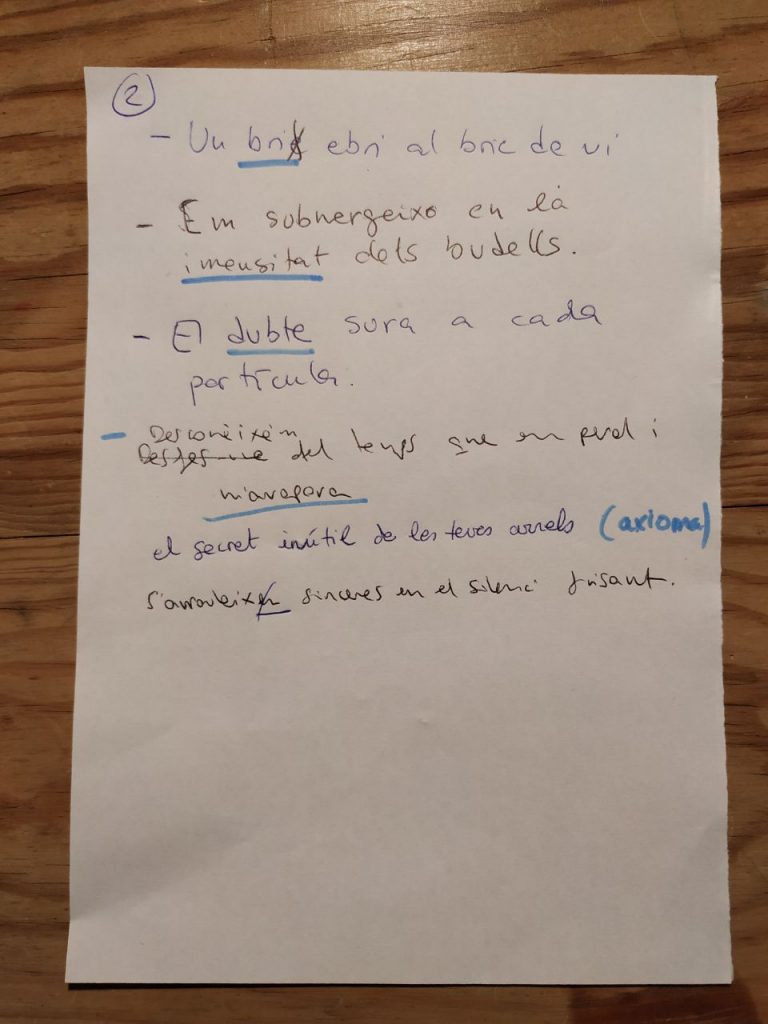 2
- Un bri ebri al bric de vi
- Em submergeixo en la
imensitat dels budells.
- El dubte sura a cada
partícula.
- Desconèixen
del temps que em perd i
m'avapora
el secret inútil de les teves arrels (axioma)
s'arrauleixen sinceres en el silenci frisant.